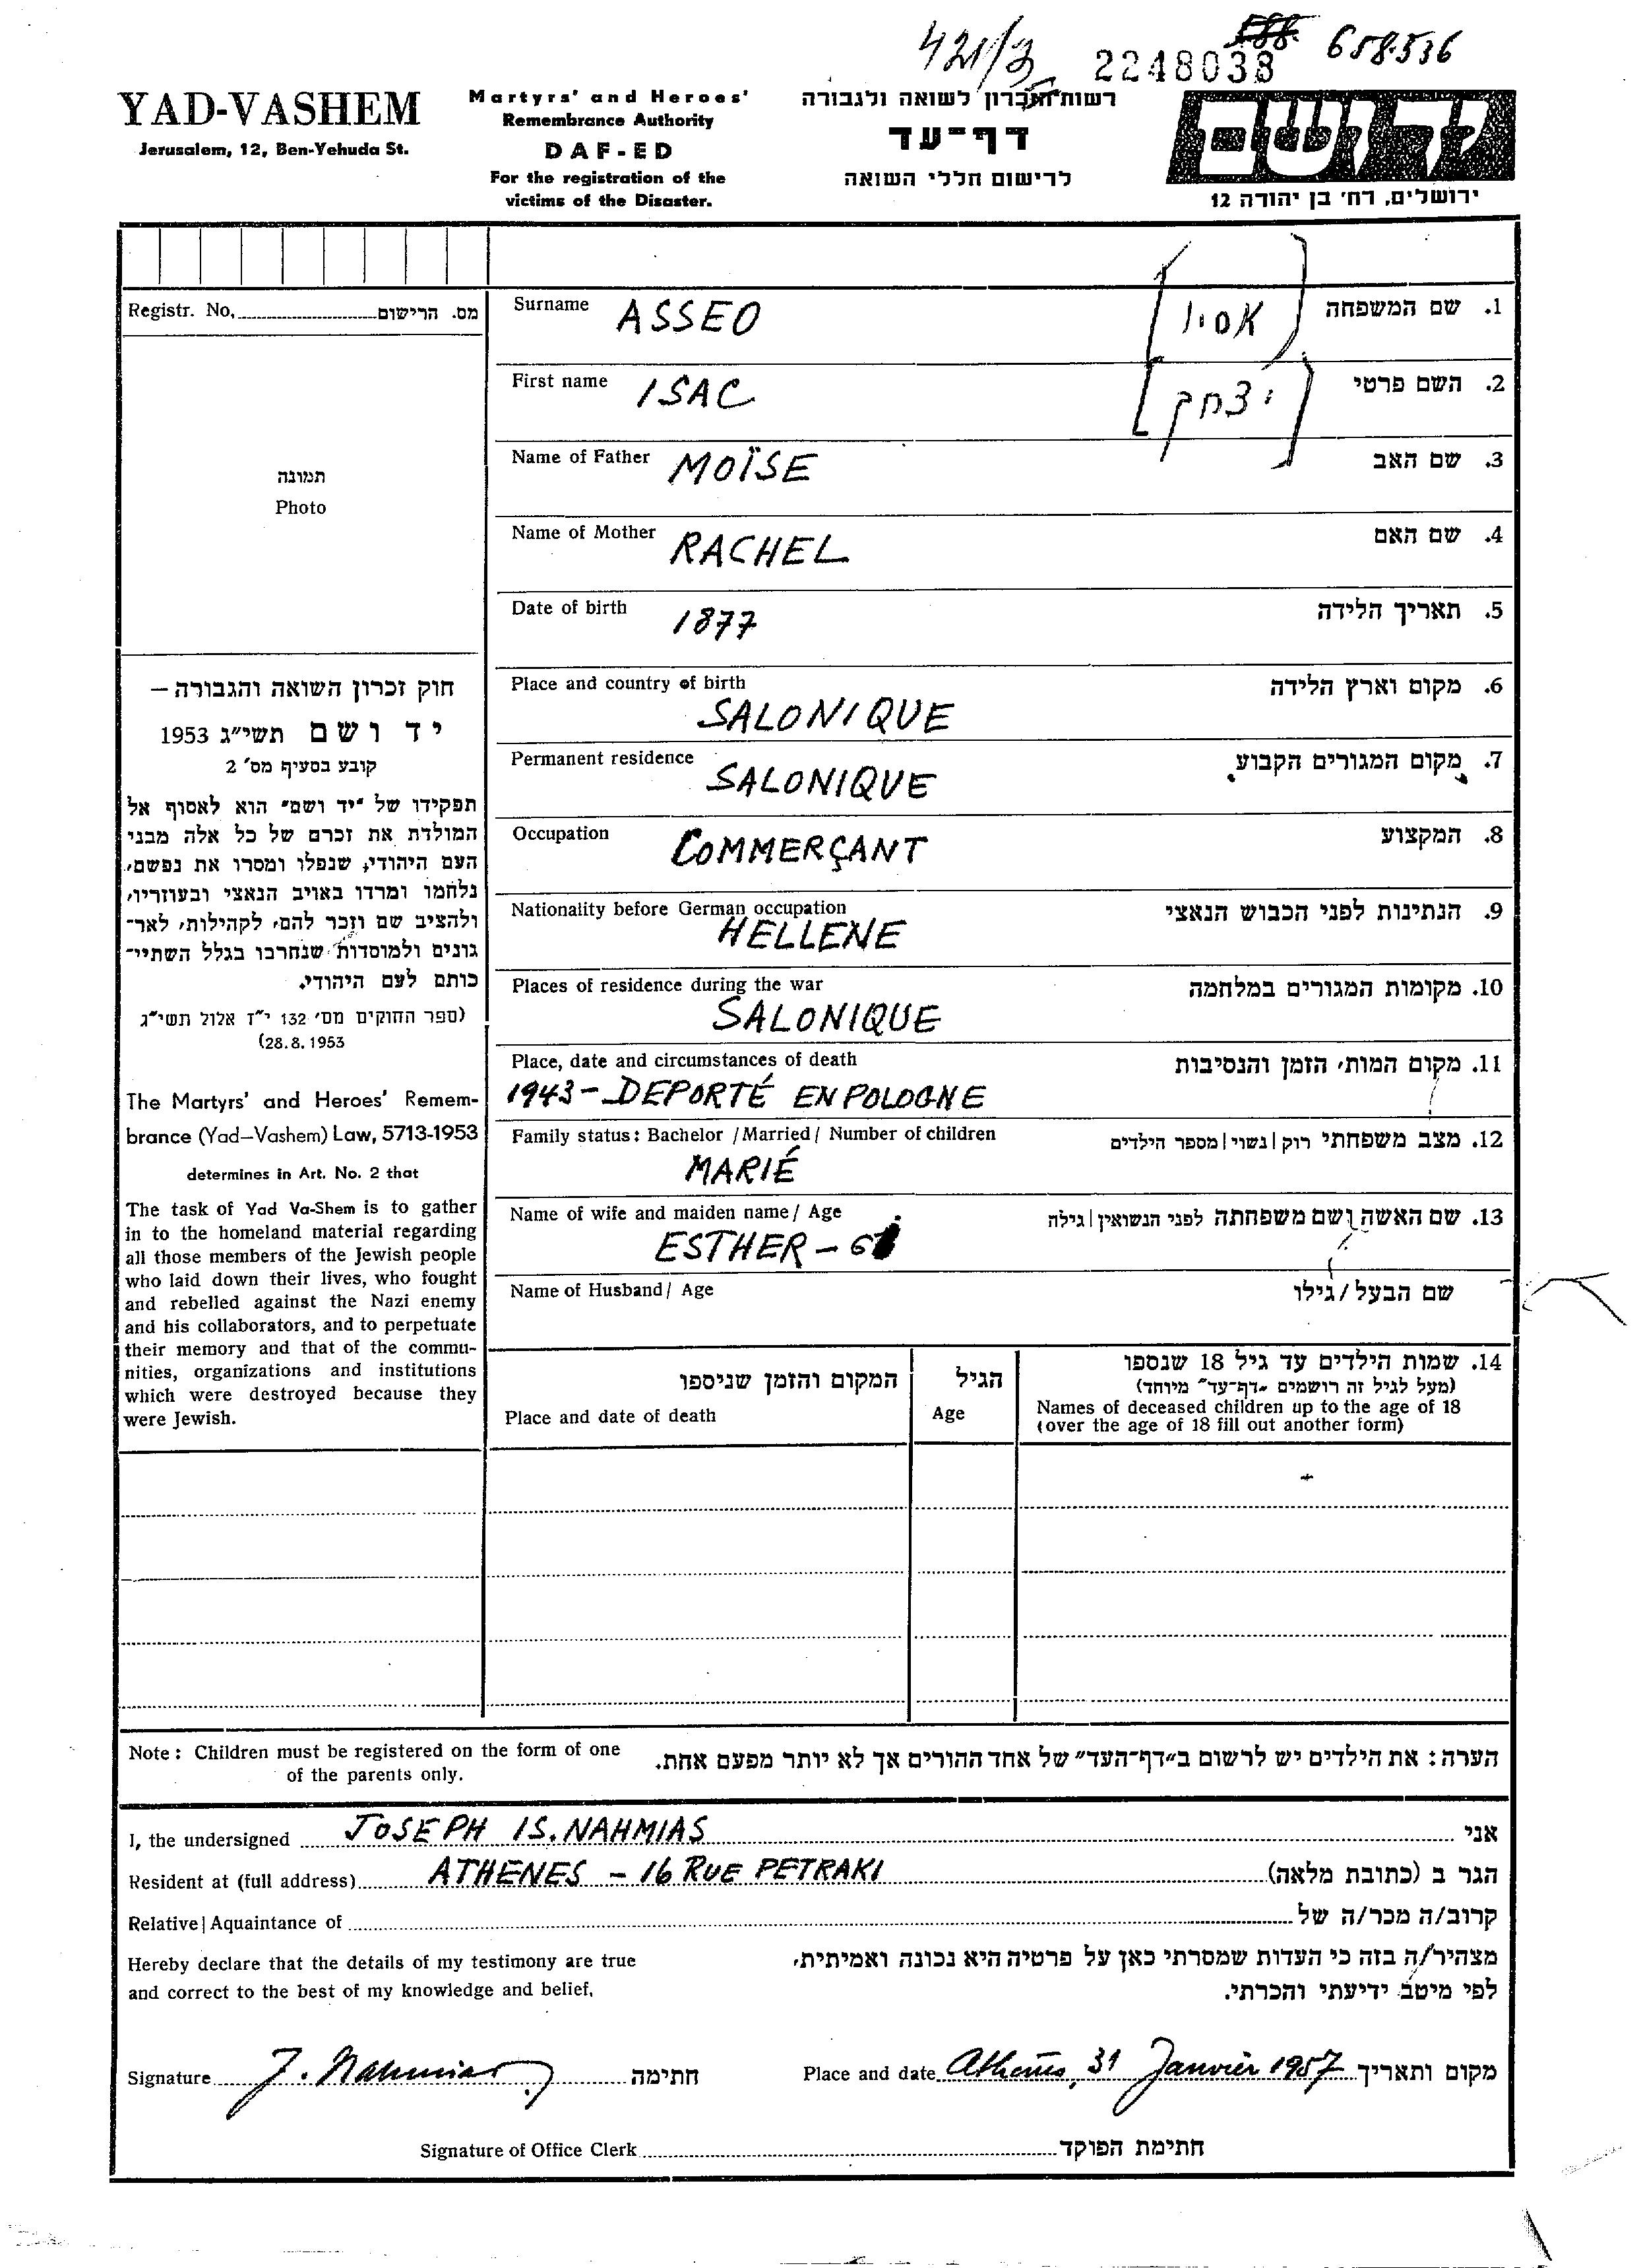 421/3 2248038 658.536
YAD-VASHEM
Jerusalem, 12, Ben-Yehuda St.
Martyrs' and Heroes'
Remembrance Authority
DAF-ED
For the registration of the
victims of the Disaster.
רשות הזכרון לשואה ולגבורה
דף-עד
לרישום חללי השואה
יד ושם
ירושלים, רח' בן יהודה 12
Registr. No. מס. הרישום
תמונה
Photo
חוק זכרון השואה והגבורה –
יד ושם תשי"ג 1953
קובע בסעיף מס' 2
תפקידו של "יד ושם" הוא לאסוף אל
המולדת את זכרם של כל אלה מבני
העם היהודי, שנפלו ומסרו את נפשם,
נלחמו ומרדו באויב הנאצי ובעוזריו,
ולהציב שם וזכר להם, לקהילות, לאר-
גונים ולמוסדות שנחרבו בגלל השתיי-
כותם לעם היהודי.
(ספר החוקים מס' 132 י"ז אלול תשי"ג
(28.8.1953
The Martyrs' and Heroes' Remem-
brance (Yad-Vashem) Law, 5713-1953
determines in Art. No. 2 that
The task of Yad Va-Shem is to gather
in to the homeland material regarding
all those members of the Jewish people
who laid down their lives, who fought
and rebelled against the Nazi enemy
and his collaborators, and to perpetuate
their memory and that of the commu-
nities, organizations and institutions
which were destroyed because they
were Jewish.
Surname ASSEO [אסיו] 1. שם המשפחה
First name ISAC [יצחק] 2. השם פרטי
Name of Father MOÏSE 3. שם האב
Name of Mother RACHEL 4. שם האם
Date of birth 1877 5. תאריך הלידה
Place and country of birth 6. מקום וארץ הלידה
SALONIQUE
Permanent residence SALONIQUE 7. מקום המגורים הקבוע
Occupation COMMERÇANT 8. המקצוע
Nationality before German occupation 9. הנתינות לפני הכבוש הנאצי
HELLENE
Places of residence during the war 10. מקומות המגורים במלחמה
SALONIQUE
Place, date and circumstances of death 11. מקום המות, הזמן והנסיבות
1943 - DEPORTÉ EN POLOGNE
Family status: Bachelor / Married / Number of children 12. מצב משפחתי רוק | נשוי | מספר הילדים
MARIÉ
Name of wife and maiden name / Age 13. שם האשה ושם משפחתה לפני הנשואין | גילה
ESTHER - 6
Name of Husband / Age שם הבעל / גילו
המקום והזמן שניספו
Place and date of death
הגיל
Age
14. שמות הילדים עד גיל 18 שנספו
(מעל לגיל זה רושמים "דף-עד" מיוחד)
Names of deceased children up to the age of 18
(over the age of 18 fill out another form)
Note: Children must be registered on the form of one
of the parents only.
הערה: את הילדים יש לרשום ב"דף-העד" של אחד ההורים אך לא יותר מפעם אחת.
I, the undersigned JOSEPH IS. NAHMIAS אני
Resident at (full address) ATHENES - 16 RUE PETRAKI הגר ב (כתובת מלאה)
Relative | Aquaintance of קרוב/ה מכר/ה של
Hereby declare that the details of my testimony are true
and correct to the best of my knowledge and belief.
מצהיר/ה בזה כי העדות שמסרתי כאן על פרטיה היא נכונה ואמיתית,
לפי מיטב ידיעתי והכרתי.
Signature J. Nahmias חתימה
Place and date Athènes, 31 Janvier 1957 מקום ותאריך
Signature of Office Clerk חתימת הפוקד